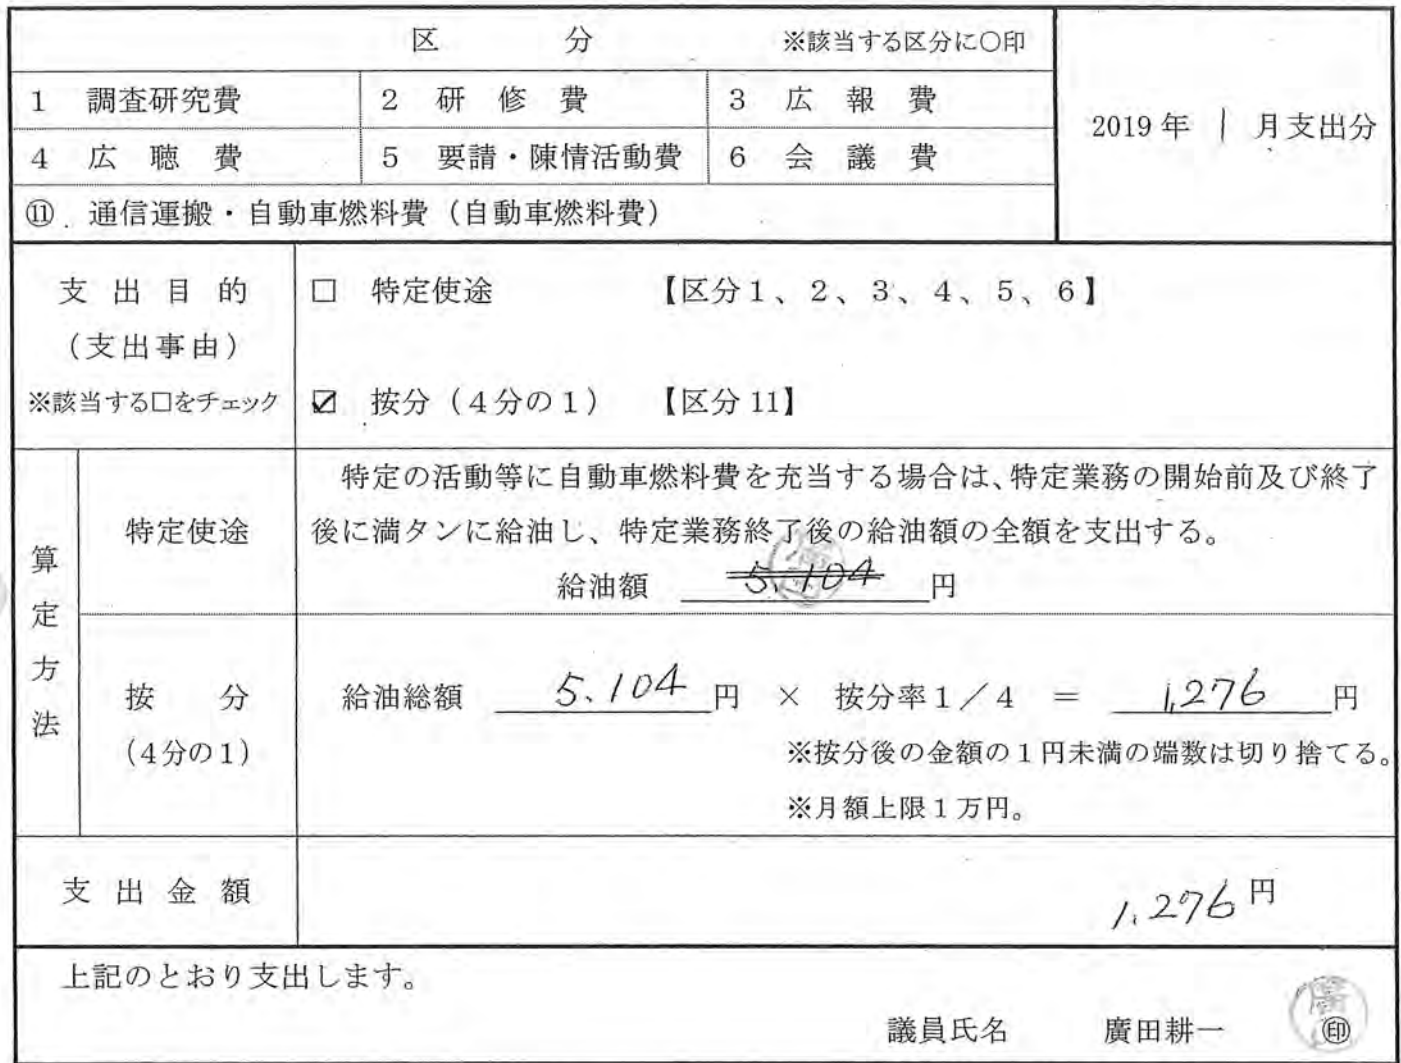 区 分 ※該当する区分に○印
1 調査研究費 2 研修費 3 広報費
2019年 1 月支出分
4 広聴費 5 要請・陳情活動費 6 会議費
⑪.通信運搬・自動車燃料費(自動車燃料費)
支出目的 □ 特定使途 【区分1、2、3、4、5、6】
(支出事由)
※該当する□をチェック ☑ 按分(4分の1) 【区分11】
算定方法
特定使途
特定の活動等に自動車燃料費を充当する場合は、特定業務の開始前及び終了
後に満タンに給油し、特定業務終了後の給油額の全額を支出する。
給油額 5,104 円
按分
(4分の1)
給油総額 5.104 円 × 按分率1/4 = 1,276 円
※按分後の金額の1円未満の端数は切り捨てる。
※月額上限1万円。
支出金額 1,276円
上記のとおり支出します。
議員氏名 廣田耕一 ㊞